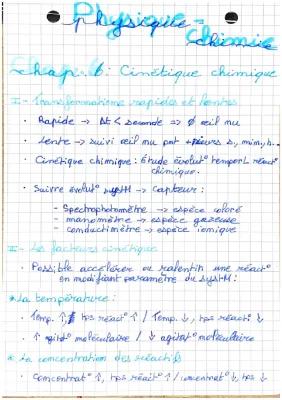 Physique-
chimie
chap. 6: Cinétique chimique
I - Transformations rapides et lentes
• Rapide → Δt < seconde => Ø œil nu
• Lente → suivi œil nu pdt +ieurs s, min, h...
• Cinétique chimique: étude évolut° temporL réact°
chimique.
• Suivre évolut° systM → Capteur:
- Spectrophotomètre → espèce coloré
- manomètre → espèce gazeuse
- conductimètre → espèce ionique
II - Les facteurs cinétique
• Possible accélérer ou ralentir une réact°
en modifiant paramètre du systM:
* La température:
• Temp. ↑, tps réact° ↑ / Temp. ↓, tps réact° ↓
• ↑ agitat° moléculaire / ↓ agitat° moléculaire
* La concentration des réactifs
• Concentrat° ↑, tps réact° ↑ / concentrat° ↓, tps ↓